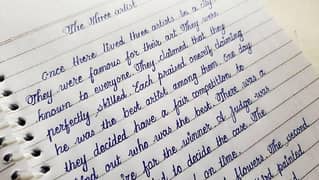 The Three artist
Once there lived three artists in a city
They were famous for their art They were
known to everyone. They claimed that they
perfectly skilled. Each praised oneself claiming
he was the best artist among them. One day
they decided have a fair competition to
out who was the best. There was a
for the winner. A judge was
to decide the case. The
on time.
flowers. The second
painted